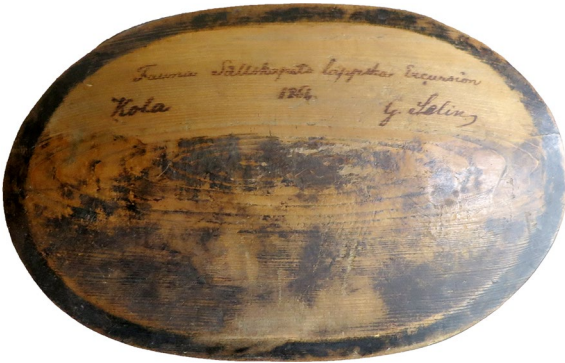 Fauna Sällskapets lappska Excursion
1864.
Kola G. Selin